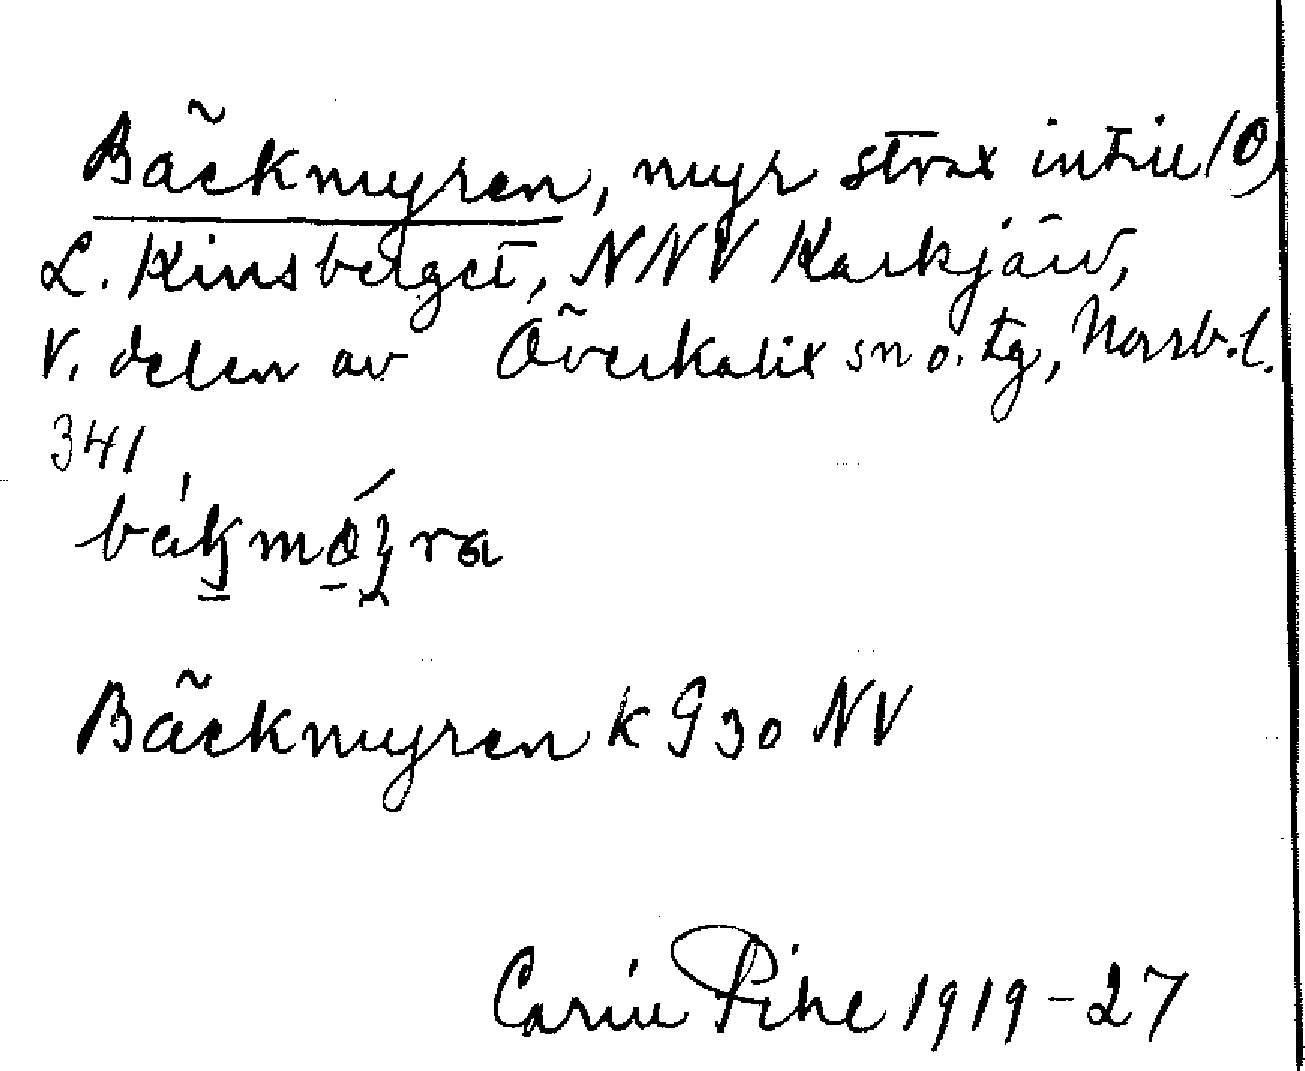 Bäckmyren, myr strax intill (O)
L. Kinsberget, NNV Karkjärv,
V. delen av Överkalix sn o. tg, Norrb. l.
341
Bäckmyren k G 30 NV
Carin Pihl 1919-27